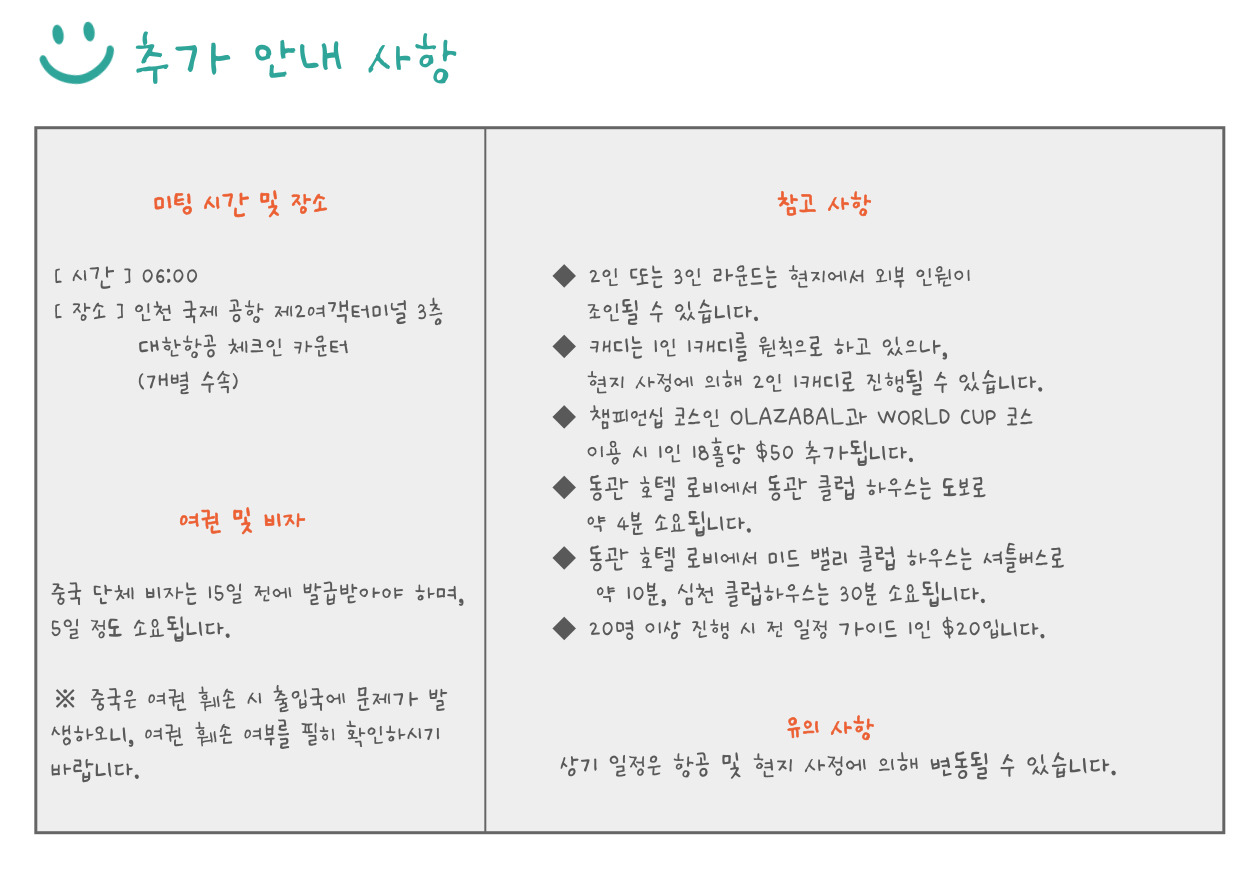 추가 안내 사항
미팅 시간 및 장소
[ 시간 ] 06:00
[ 장소 ] 인천 국제 공항 제2여객터미널 3층
대한항공 체크인 카운터
(개별 수속)
여권 및 비자
중국 단체 비자는 15일 전에 발급받아야 하며,
5일 정도 소요됩니다.
※ 중국은 여권 훼손 시 출입국에 문제가 발
생하오니, 여권 훼손 여부를 필히 확인하시기
바랍니다.
참고 사항
◆ 2인 또는 3인 라운드는 현지에서 외부 인원이
조인될 수 있습니다.
◆ 캐디는 1인 1캐디를 원칙으로 하고 있으나,
현지 사정에 의해 2인 1캐디로 진행될 수 있습니다.
◆ 챔피언십 코스인 OLAZABAL과 WORLD CUP 코스
이용 시 1인 18홀당 $50 추가됩니다.
◆ 동관 호텔 로비에서 동관 클럽 하우스는 도보로
약 4분 소요됩니다.
◆ 동관 호텔 로비에서 미드 밸리 클럽 하우스는 셔틀버스로
약 10분, 심천 클럽하우스는 30분 소요됩니다.
◆ 20명 이상 진행 시 전 일정 가이드 1인 $20입니다.
유의 사항
상기 일정은 항공 및 현지 사정에 의해 변동될 수 있습니다.